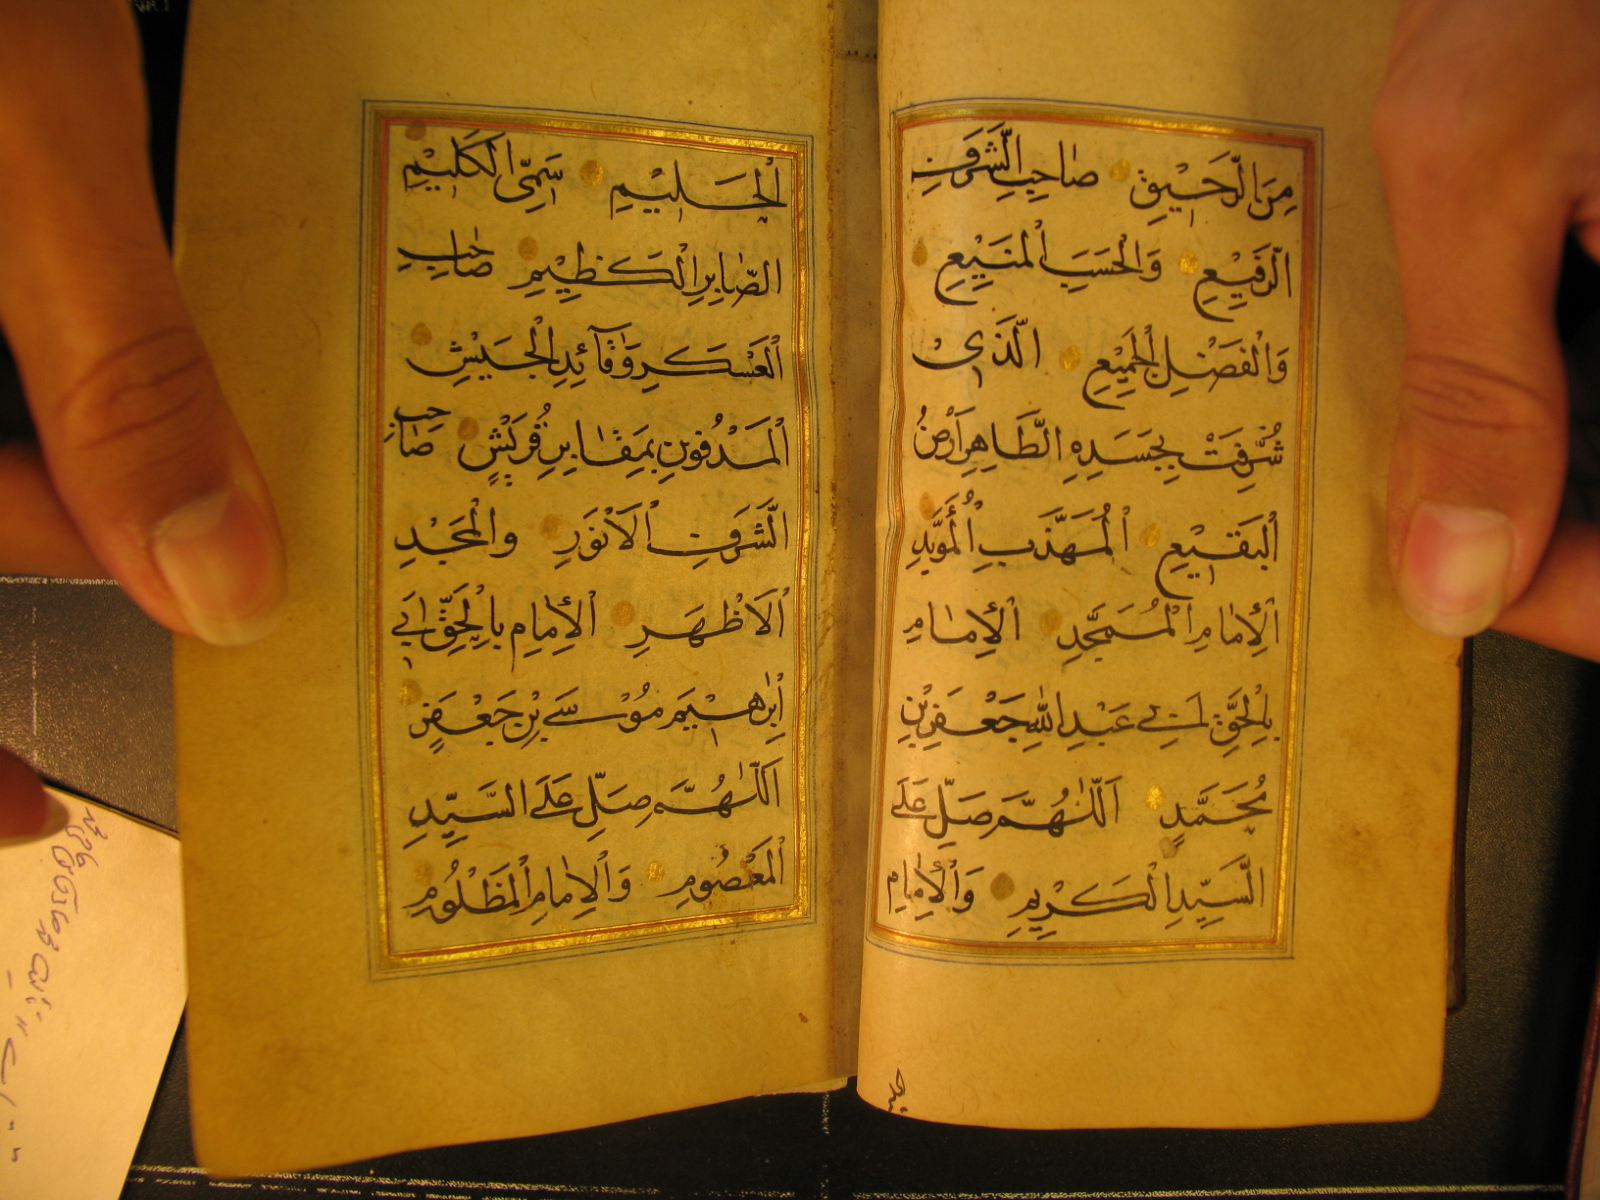 مِنَ الرَّحِيْقِ صَاحِبِ الشَّرَفِ
الرَّفِيْعِ وَالْحَسَبِ الْمَنِيْعِ
وَالْفَضْلِ الْجَمِيْعِ الَّذِىْ
شُرِّفَتْ بِجَسَدِهِ الطَّاهِرِ اَرْضُ
الْبَقِيْعِ الْمُهَذَّبِ الْمُؤَيَّدِ
الْاِمَامِ الْمُمَجَّدِ الْاِمَامِ
بِالْحَقِّ اَبِى عَبْدِ اللهِ جَعْفَرِ بْنِ
مُحَمَّدٍ اَللّٰهُمَّ صَلِّ عَلَى
السَّيِّدِ الْكَرِيْمِ وَالْاِمَامِ
الْحَلِيْمِ سَمِىِّ الْكَلِيْمِ
الصَّابِرِ الْكَظِيْمِ صَاحِبِ
الْعَسْكَرِ وَقَآئِدِ الْجَيْشِ
الْمَدْفُوْنِ بِمَقَابِرِ قُرَيْشٍ صَاحِبِ
الشَّرَفِ الْاَنْوَرِ وَالْمَجْدِ
الْاَظْهَرِ الْاِمَامِ بِالْحَقِّ اَبِى
اِبْرٰهِيْمَ مُوْسَى بْنِ جَعْفَرٍ
اَللّٰهُمَّ صَلِّ عَلَى السَّيِّدِ
الْمَعْصُوْمِ وَالْاِمَامِ الْمَظْلُوْمِ